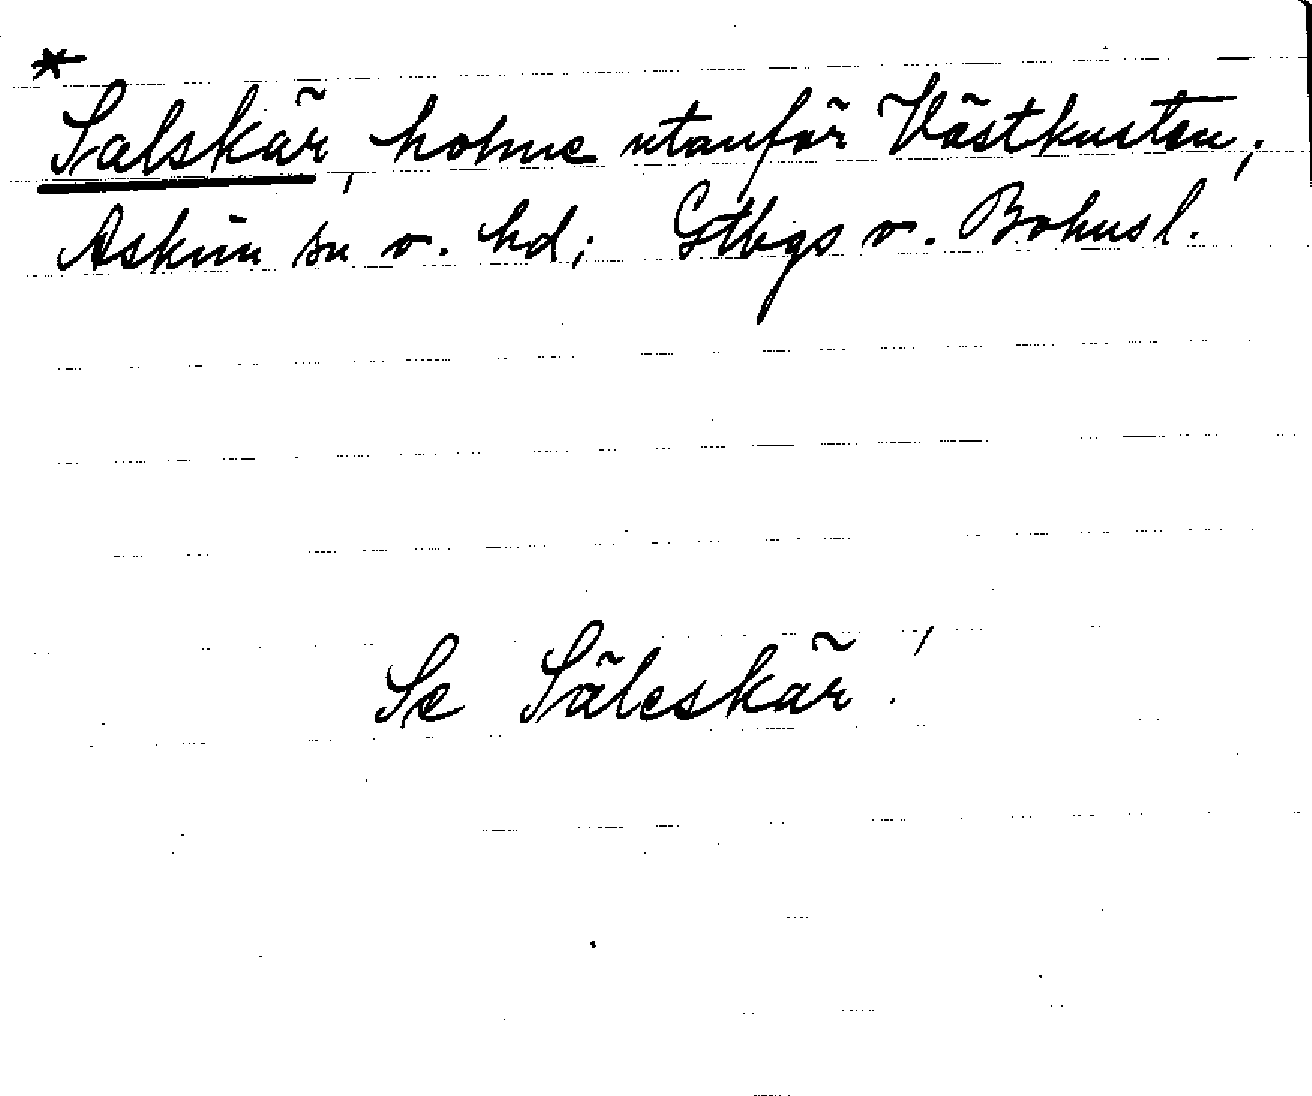 *
Salskär, holme utanför Västkusten;
Askim sn o. hd; Gtbgs o. Bohusl.
Se Säleskär!